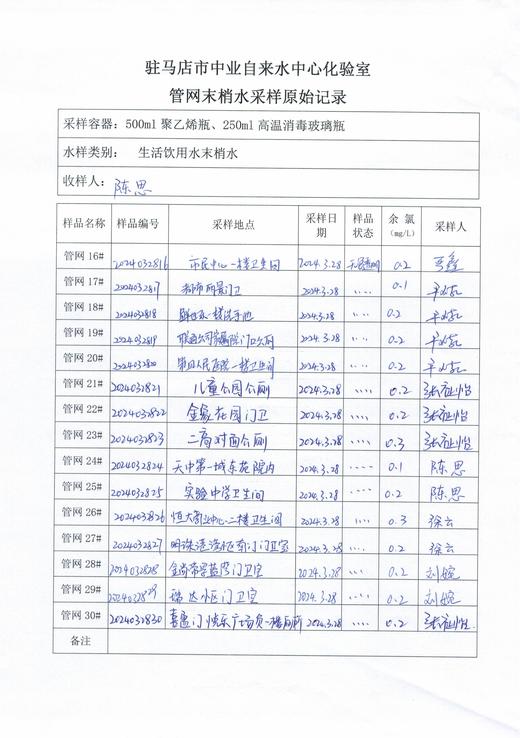 驻马店市中业自来水中心化验室
管网末梢水采样原始记录
采样容器：500ml 聚乙烯瓶、250ml 高温消毒玻璃瓶
水样类别： 生活饮用水末梢水
收样人： 陈思
样品名称 样品编号 采样地点 采样日期 样品状态 余氯(mg/L) 采样人
管网 16# 2024032816 市民中心一楼卫生间 2024.3.28 无色透明 0.2
管网 17# 2024032817 门卫 2024.3.28 ″″ 0.1
管网 18# 2024032818 2024.3.28 ″″ 0.2
管网 19# 2024032819 2024.3.28 ″″ 0.2
管网 20# 2024032820 一楼卫生间 2024.3.28 ″″ 0.2
管网 21# 2024032821 儿童公园公厕 2024.3.28 ″″ 0.2
管网 22# 2024032822 金象花园门卫 2024.3.28 ″″ 0.2
管网 23# 2024032823 二高对面公厕 2024.3.28 ″″ 0.3
管网 24# 2024032824 天中第一城东苑院内 2024.3.28 ″″ 0.1 陈思
管网 25# 2024032825 实验中学卫生间 2024.3.28 ″″ 0.2 陈思
管网 26# 2024032826 恒大商业中心二楼卫生间 2024.3.28 ″″ 0.3 徐云
管网 27# 2024032827 门卫室 2024.3.28 ″″ 0.2 徐云
管网 28# 2024032828 门卫室 2024.3.28 ″″ 0.2 刘婉
管网 29# 2024032829 小区门卫室 2024.3.28 ″″ 0.2 刘婉
管网 30# 2024032830 喜盈门悦乐广场负一楼厕所 2024.3.28 ″″ 0.2
备注